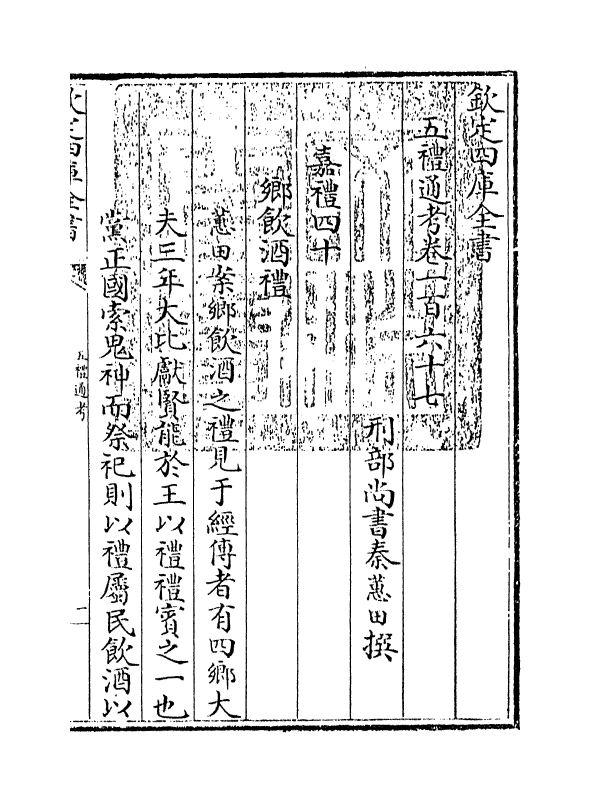 欽定四庫全書
五禮通考卷一百六十七
刑部尚書秦蕙田撰
嘉禮四十
鄉飲酒禮
蕙田案鄉飲酒之禮見于經傳者有四鄉大
夫三年大比獻賢能於王以禮禮賓之一也
黨正國索鬼神而祭祀則以禮屬民飲酒以
欽定四庫全書
五禮通考